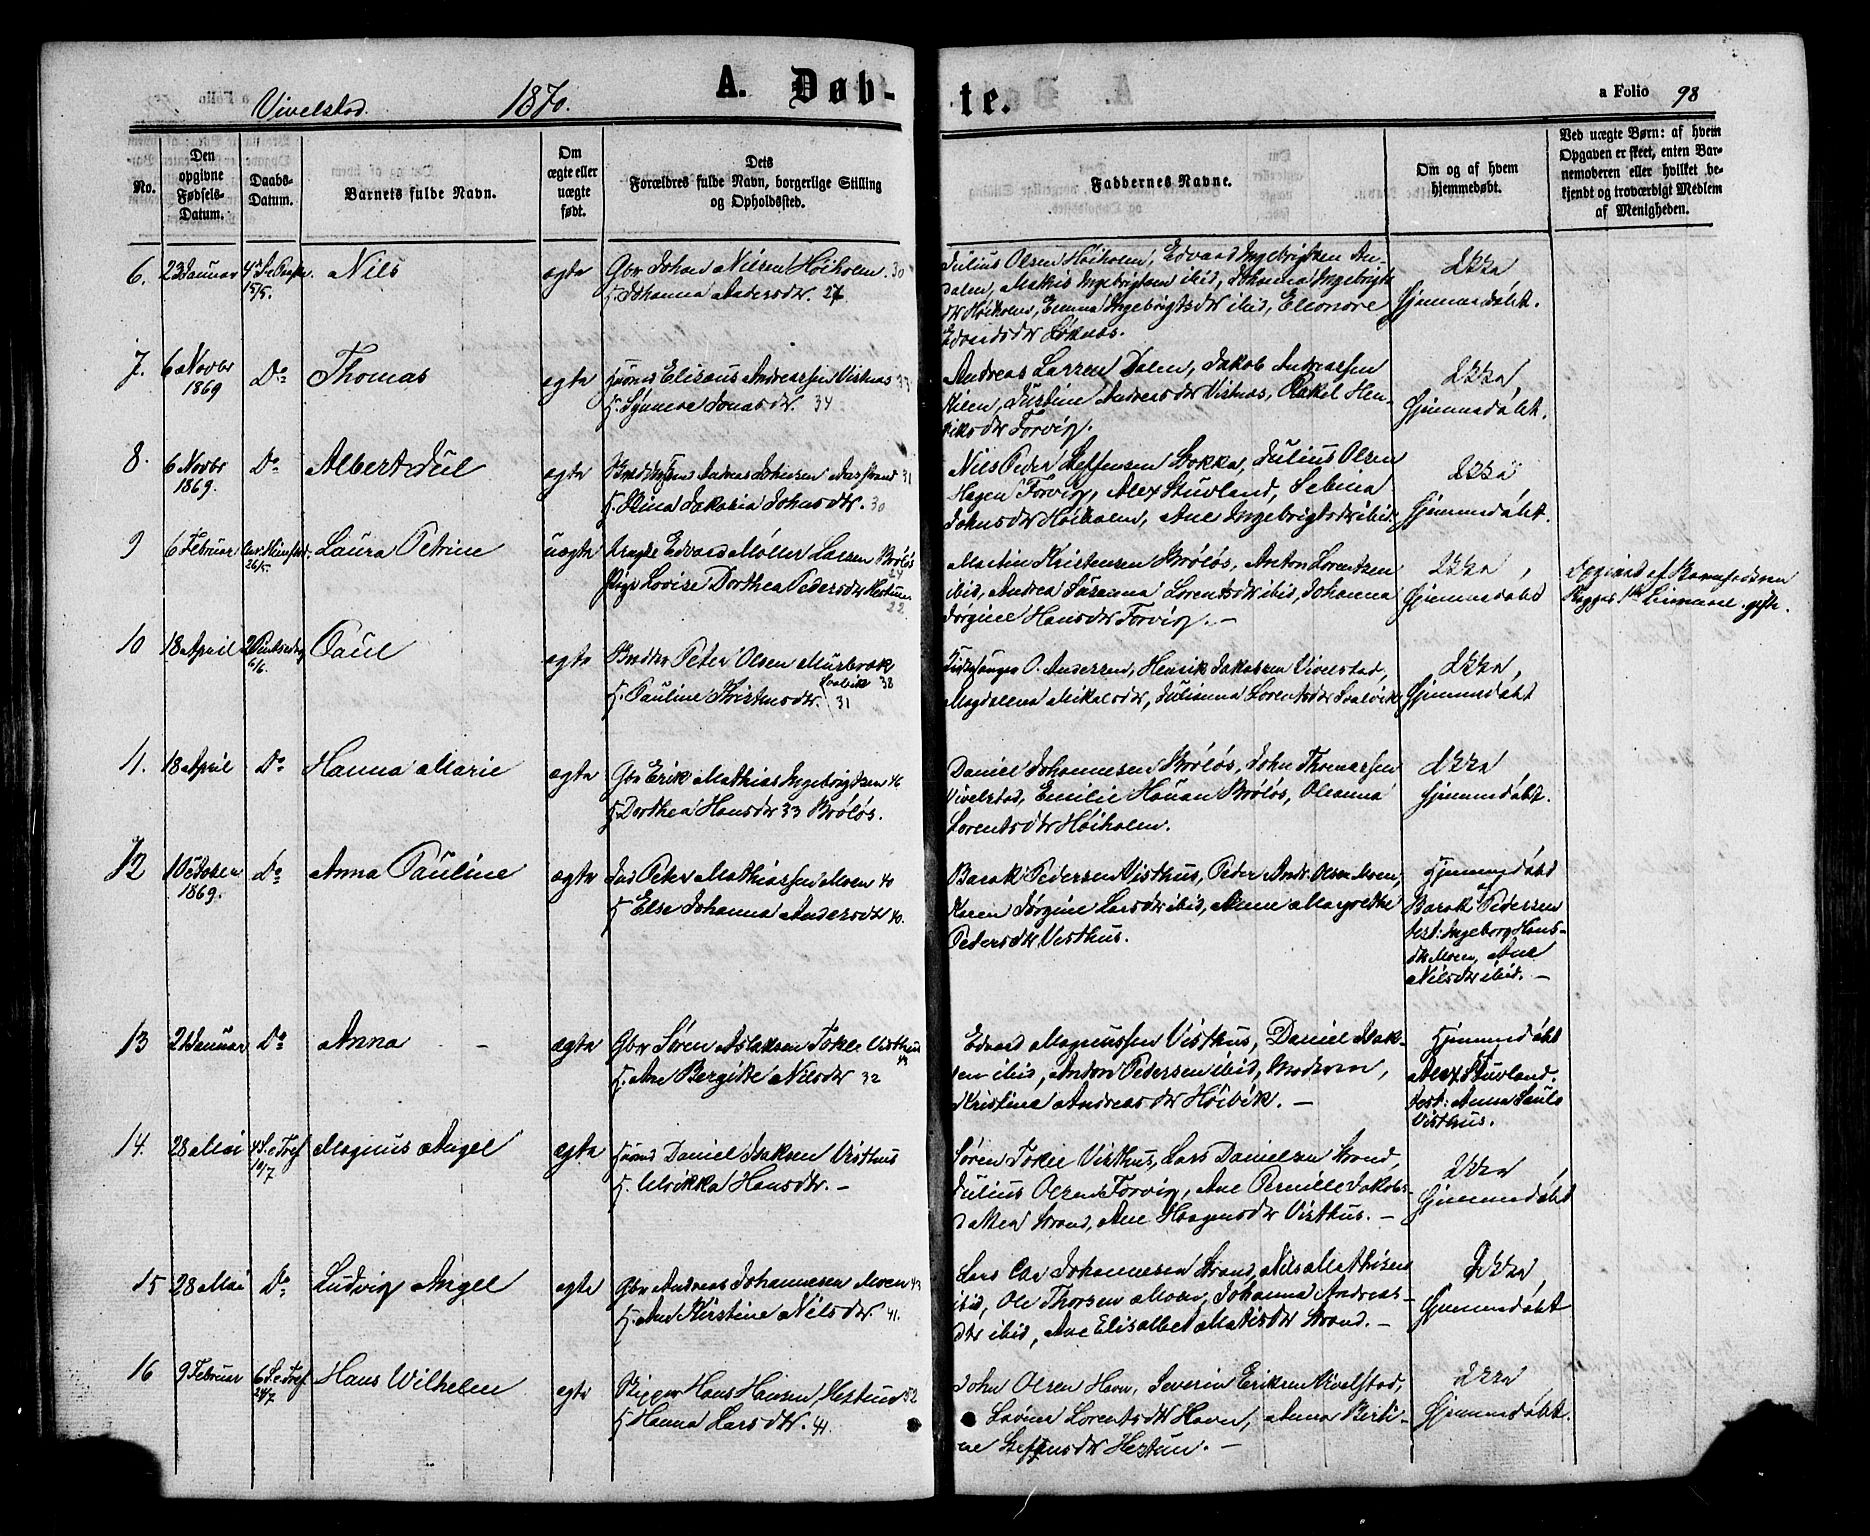 Vivelstad. 1870. A. Døb-
te. a Folio 98
No.
Den
opgivne
Fødsels-
Datum.
Daabs-
Datum.
Barnets fulde Navn.
Om
ægte eller
uægte
født.
Dets
Forældres fulde Navn, borgerlige Stilling
og Opholdssted.
Faddernes Navne.
Om og af hvem
hjemmedøbt.
Ved uægte Børn: af hvem
Opgaven er skeet, enten Bar-
nemoderen eller hvilket be-
kjendt og troværdigt Medlem
af Menigheden.
6. 23 Januar 15/5. Nils ægte
Gbr Johan Nilsen Høiholm. 30
K. Johanna Andersdtr. 27.
Julius Olsen Høiholm, Edvard Ingebrigtsen An-
dalen, Mathis Ingebrigtsen ibid, Johanna Ingebrigts-
dtr Høiholm, Emma Ingebrigtsdtr ibid, Elonore
Ikke
hjemmedøbt.
7. 6 Novbr
1869 Do Thomas ægte
Elisæus Andreassen Visthus 33
K. Synneve Jonasdtr. 34
Andreas Larsen Dalen, Jakob Andreassen
Justine Andreasdtr Visthus, Rakel Hen-
riksdtr Forvig.
Ikke,
hjemmedøbt.
8. 6 Novbr
1869. Do Albert Jul ægte
Andreas Johnsen Aasstrand 31
K. Stina Jakobia Johnsdtr. 30
Nils Peder Steffensen Stokka, Julius Olsen
Hagen Forvig, Alex Stuvland, Selma
Johnsdtr Høiholm, Ane Ingebrigtsdtr ibid.
Ikke
hjemmedøbt.
9 6 Februar 26/5. Laura Petrine uægte
Edvard Møller Larsen Brøløs
24
Pige Lovise Dorthea Pedersdtr Hestun
22.
Martin Kristensen Brøløs, Anton Lorentzen
ibid, Andrea Susanna Lorentsdtr ibid, Johanna
Jørgine Hansdtr Forvig. –
Ikke,
hjemmedøbt
Opgivet af Barnefaderen
Begges 1ste Leiermaal. gifte.
10 18 April 2 Pintsedag
6/6. Paul ægte
Peter Olsen Murbræk
38
K. Pauline Kristensdtr. 31
O. Andersen, Henrik Jakobsen Vivelstad,
Magdalena Mikalsdtr, Julianna Lorentsdtr
Ikke,
hjemmedøbt
11. 18 April Do Hanna Marie ægte
Gbr Erik Mathias Ingebrigtsen 46
K. Dorthea Hansdtr 33 Brøløs.
Daniel Johannesen Brøløs, John Thomassen
Vivelstad, Emilie Hansen Brøløs, Oleanna
Lorentsdtr Høiholm.
Ikke
hjemmedøbt.
12 1 October
1869. Do Anna Pauline ægte
Ind Peter Mathiassen Moen 40
K Else Johanna Andersdtr 40.
Barak Pedersen Visthus, Peder Andr. Olsen Moen,
Karen Jørgine Larsdtr ibid, Anne Margrethe
Pedersdtr Visthus.
Hjemmedøbt
af
Barak Pedersen
test: Ingeborg Hans-
dtr Moen, Ane
Nilsdtr ibid. –
13 21 Januar Do Anna – ægte
Gbr Søren Aslaksen Tokle Visthus
K. Ane Bergitte Nilsdtr 32
Edvard Magnussen Visthus, Daniel Isak-
sen ibid, Anton Pedersen ibid, Moderen,
Kristine Andreasdtr Høivik. –
Hjemmedøbt
Alex Stuvland.
test: Anna Pauls
Visthus.
14. 28 Mai 10/7 Magnus Angel ægte
Daniel Isaksen Visthus
K. Ulrikka Hansdtr. –
Søren Tokle Visthus, Lars Danielsen Strand,
Julius Olsen Forvig, Ane Pernille Jakobs-
datter Strand, Ane Haagensdtr Visthus. –
Ikke
hjemmedøbt
15 28 Mai Do Ludvig Angel ægte
Gbr Andreas Johannesen Moen 43
K. Ane Kirstine Nilsdtr. 41.
Lars Johannesen Strand, Nils Mathisen
ibid, Ole Thorsen Moen, Johanna Andreas-
dtr ibid, Ane Elisabet Matisdtr Strand. –
Ikke,
hjemmedøbt
16 9 Februar 24/7 Hans Wilhelm ægte
Skipper Hans Hansen Hestun 52
K Hanna Larsdtr. 41.
John Olsen Havn, Severin Eriksen Vivelstad,
Lovina Lorentsdtr Havn, Anna Berti-
ne Steffensdtr Hestun. –
Ikke
hjemmedøbt.